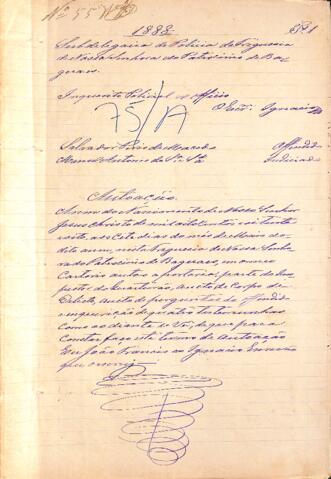 Nº 55
1888
Subdelegacia de Policia da Freguesia
de Nossa Senhora do Patrocinio de Ba-
gaças.
Inquerito Policial ex officio
O Escr.m Ignacio
75/A
Salvador de Macedo Offendido
Antonio de Indiciado
Autoação
Anno do Nascimento de Nosso Senhor
Jesus Christo de mil oito centos e oitenta
e oito, aos sete dias do mes de Maio do
dito anno, nesta Freguesia de Nossa Senho-
ra do Patrocinio de Bagaças, em o meu
Cartorio autuo a portaria, parte do Ins
petor do Quarteirão, auto de Corpo de
Delicto, auto de perguntas ao offendido
e inquirição de quatro testemunhas
como ao diante se vê, do que para
constar faço este termo de autoação
Eu João Francisco Ignacio Escrivão
que o escrevi